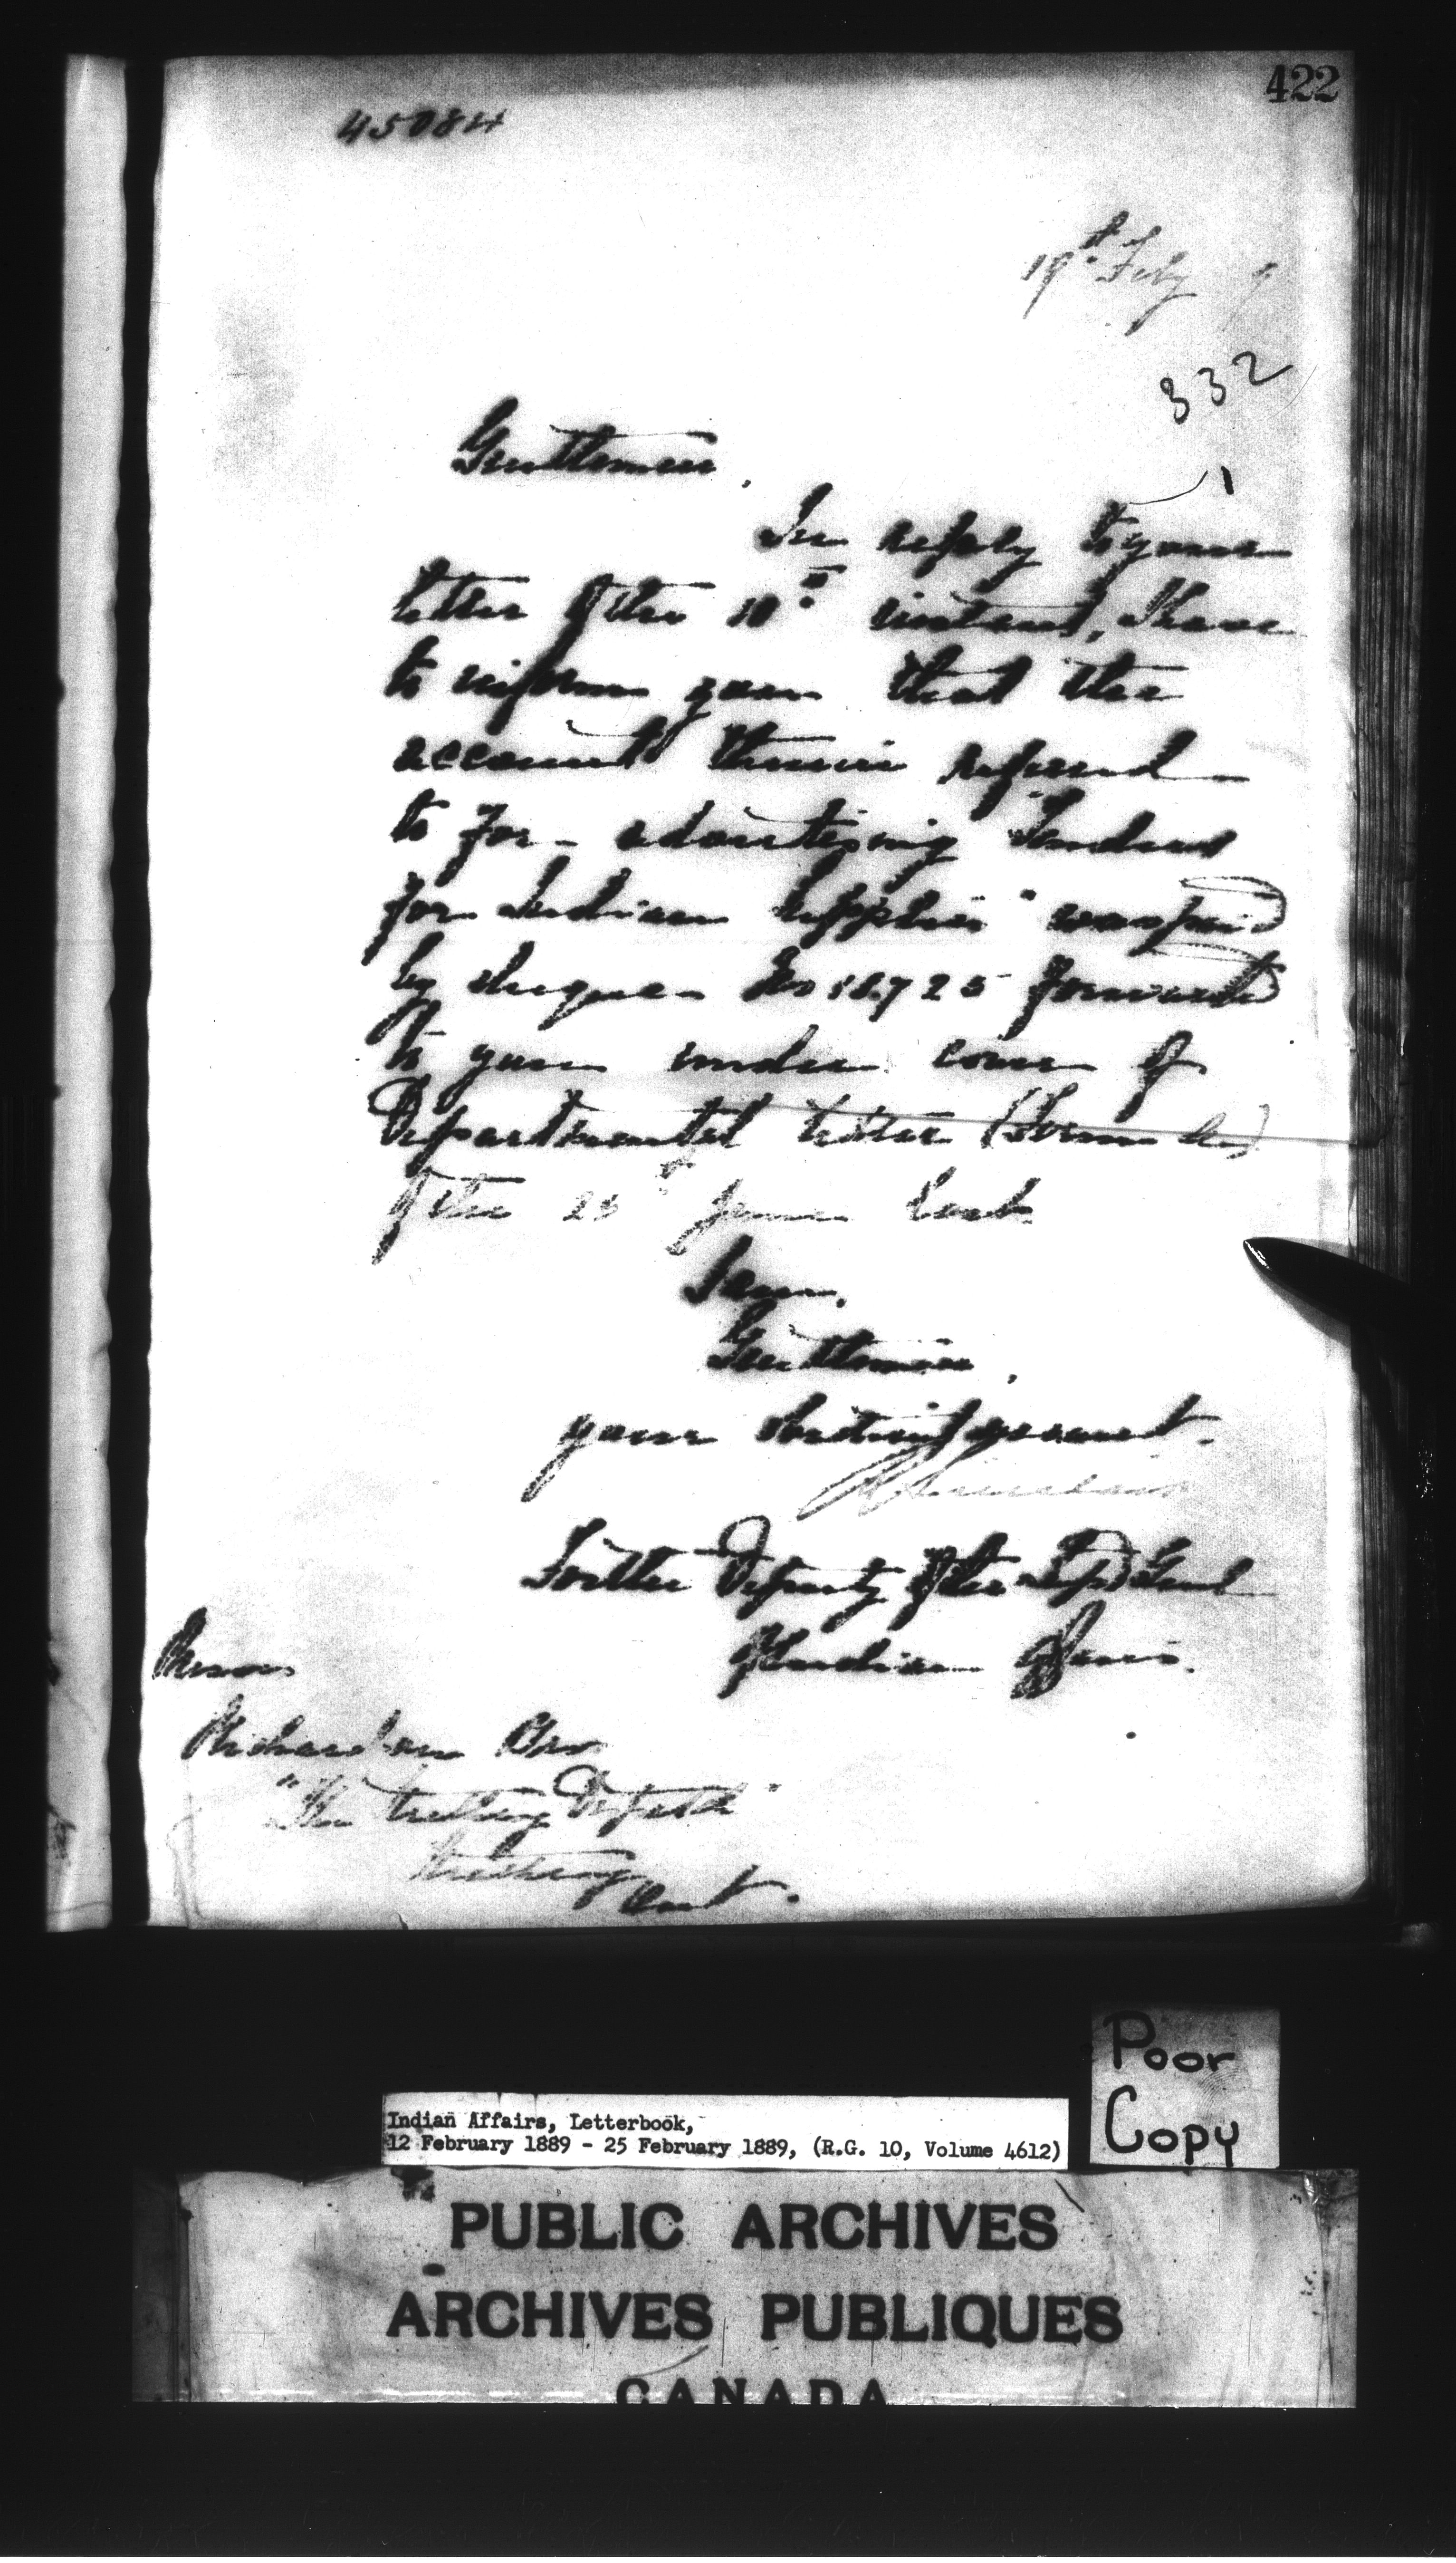 422
45084
19th Feby 9
332
Gentlemen,
In reply to your
letter of the 10th instant, I have
to inform you that the
account therein referred
to for advertising "Tenders
for Indian Supplies" was paid
by cheque No forward
to you under cover of
Departmental letter
of the 25th June last.
I am,
Gentlemen,
your obedient servant.
Sinclair
For the Deputy of the Supt Genl
of Indian Affairs.
Messrs
Richardson Bros
"The Deposit"
Ont.
Poor
Copy
Indian Affairs, Letterbook,
12 February 1889 - 25 February 1889, (R.G. 10, Volume 4612)
PUBLIC ARCHIVES
ARCHIVES PUBLIQUES
CANADA